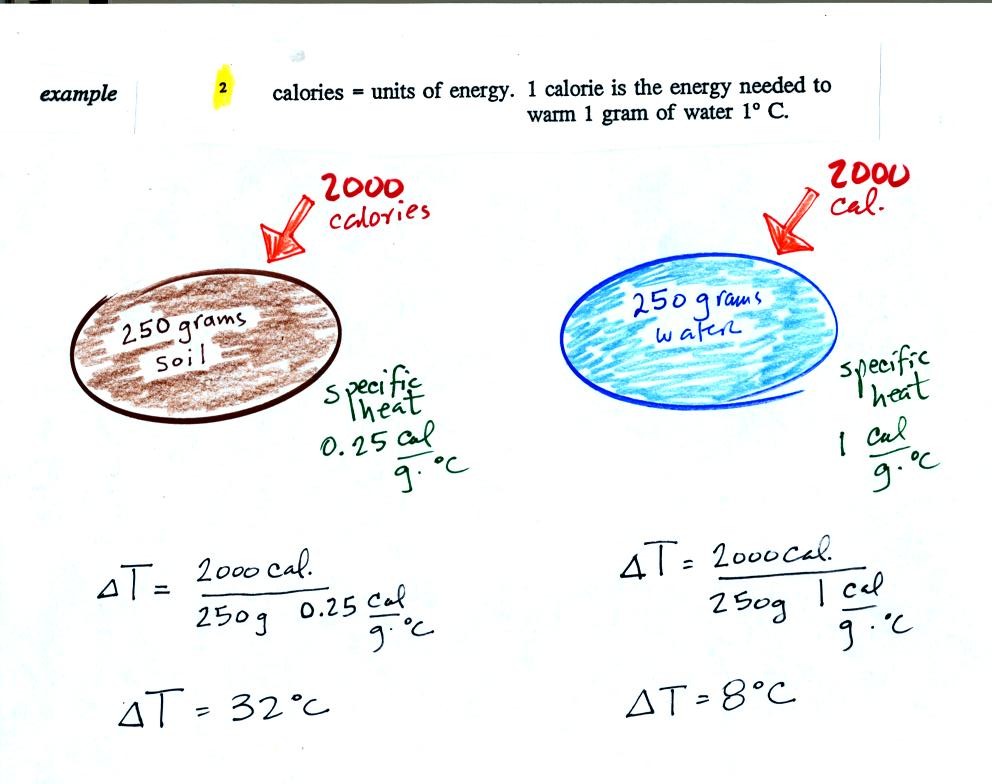 example 2 calories = units of energy. 1 calorie is the energy needed to
warm 1 gram of water 1° C.
2000
calories
250 grams
soil
specific
heat
0.25 cal
g. °C
2000
cal.
250 grams
water
specific
heat
1 cal
g. °C
ΔT = 2000 cal.
250g 0.25 cal
g. °C
ΔT = 32°C
ΔT = 2000 cal.
250g 1 cal
g. °C
ΔT = 8°C